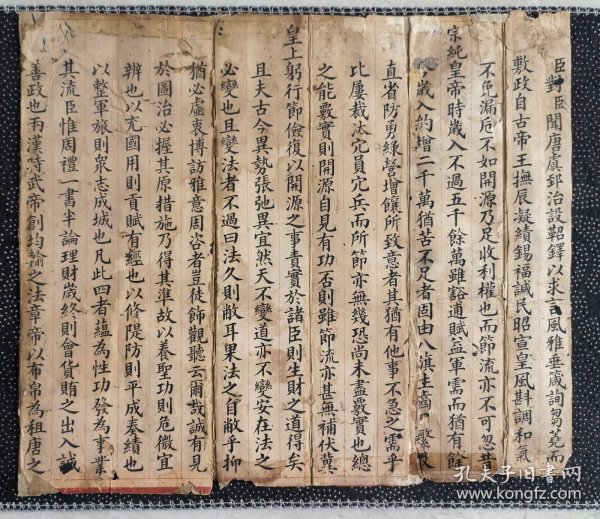 臣對臣聞唐虞郅治設鞀鐸以求言風雅垂箴詢芻蕘而
敷政自古帝王撫辰凝績錫福諴民昭宣皇風斟調和氣
不免漏卮不如開源乃足收利權也而節流亦不可忽其
宗純皇帝時歲入不過五千餘萬雖豁逋賦益軍需而猶有餘
歲入約增二千萬猶苦不足者固由八旗生齒繁
直省防勇綠營增饟所致意者其猶有他事不急之需乎
比屢裁汰宂員宂兵而所節亦無幾恐尚未盡覈實也總
之能覈實則開源自見有功否則雖節流亦甚無補伏冀
皇上躬行節儉復以開源之事責實於諸臣則生財之道得矣
且夫古今異勢張弛異宜然天不變道亦不變安在法之
必變也且變法者不過曰法久則敝耳果法之自敝乎抑
猶必虛衷博訪雅意周咨者豈徒飾觀聽云爾哉誠有見
於圖治必握其原措施乃得其準故以養聖功則危微宜
辨也以充國用則貢賦有經也以修隄防則平成奏績也
以整軍旅則衆志成城也凡此四者蘊為性功發為事業
其流臣惟周禮一書半論理財歲終則會貨賄之出入誠
善政也兩漢時武帝創均輸之法章帝以布帛為租唐之
孔夫子旧书网
www.kongfz.com